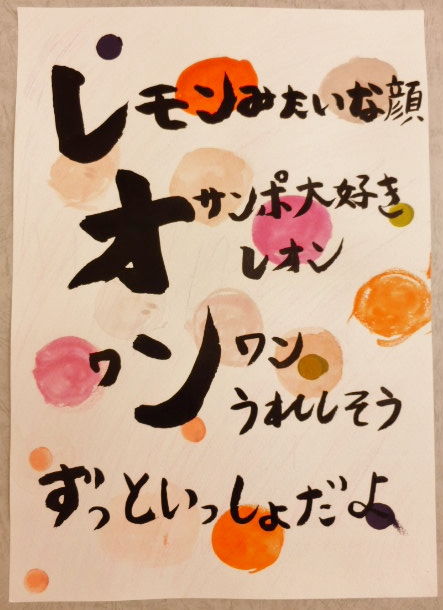 レモンみたいな顔
オサンポ大好き
レオン
ワンワン
うれしそう
ずっといっしょだよ